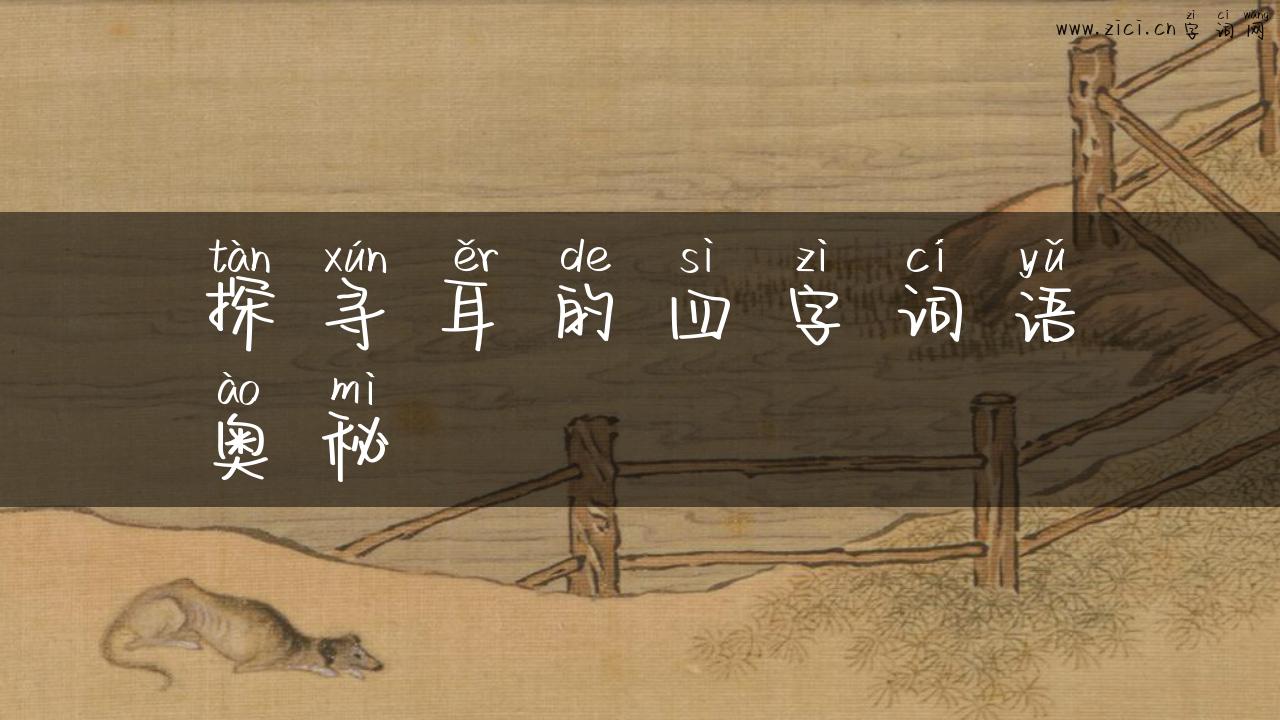 zi ci wang
www.zici.cn字词网
tàn xún ěr de sì zì cí yǔ
探寻耳的四字词语
ào mì
奥秘